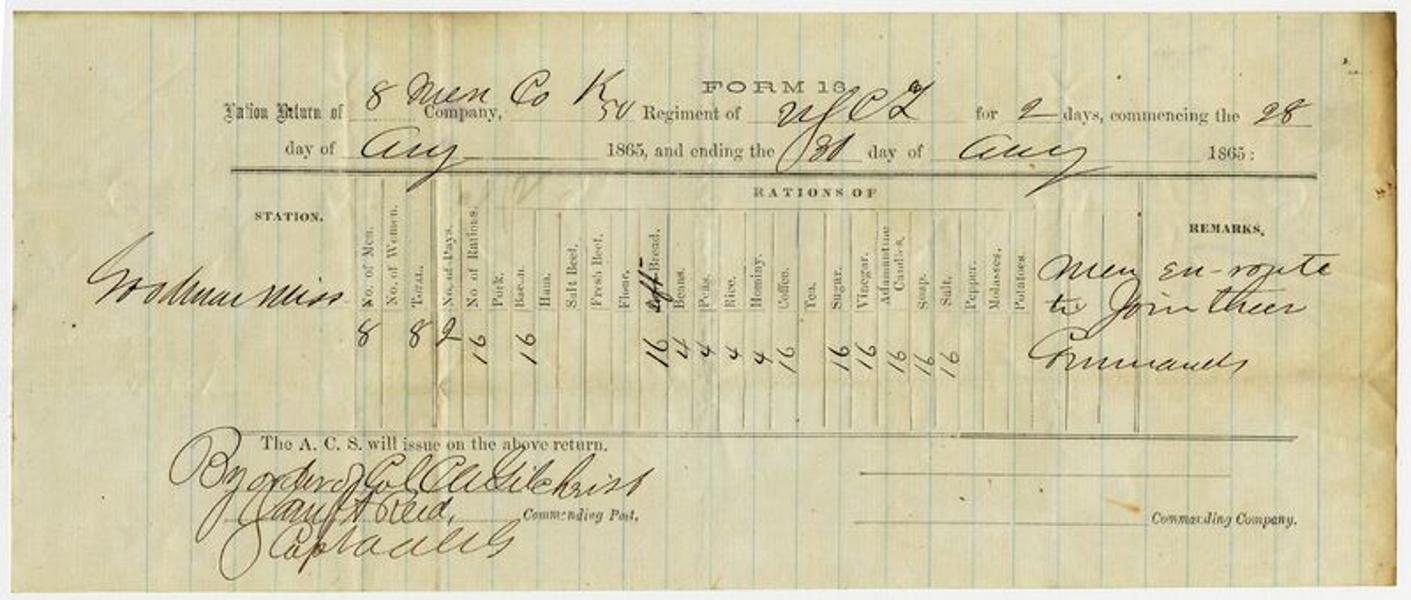 FORM 13
Ration Return of 8 Men Co K Company, 50 Regiment of USCI for 2 days, commencing the 28
day of Aug 1865, and ending the 30 day of Aug 1865:
RATIONS OF
STATION. No. of Men. No. of Women. Total. No. of Days. No of Rations. Pork. Bacon. Ham. Salt Beef. Fresh Beef. Flour. soft Bread. Beans. Peas. Rice. Hominy. Coffee. Tea. Sugar. Vinegar. Adamantine Candles. Soap. Salt. Pepper. Molasses. Potatoes. REMARKS.
Goodman Miss 8 8 2 16 16 16 4 4 4 4 16 16 16 16 16 16 Men en-route
to Join their
Commands
The A. C. S. will issue on the above return.
By order of Col CA Gilchrist
Reid, Commending Post. Commanding Company.
Capt